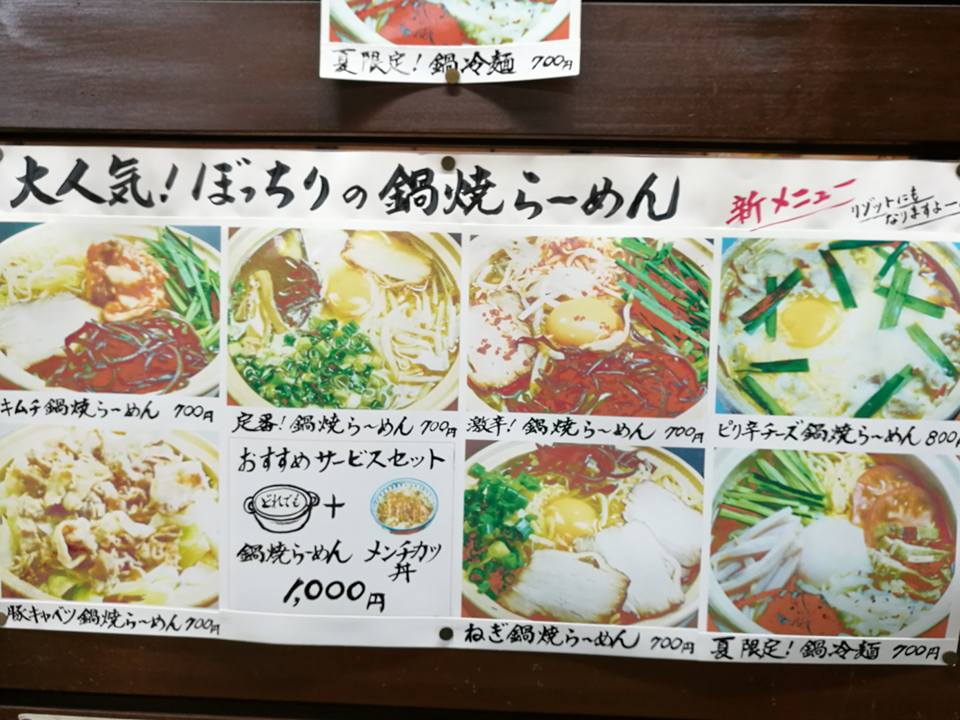 夏限定！鍋冷麺 700円
大人気！ぼっちりの鍋焼らーめん
新メニュー
リゾットにも
なりますよー
キムチ鍋焼らーめん 700円
定番！鍋焼らーめん 700円
激辛！鍋焼らーめん 700円
ピリ辛チーズ鍋焼らーめん 800円
豚キャベツ鍋焼らーめん 700円
おすすめサービスセット
どれでも
+
鍋焼らーめん
メンチカツ
丼
1,000円
ねぎ鍋焼らーめん 700円
夏限定！鍋冷麺 700円